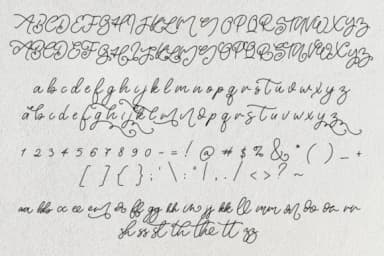 ABCDEFGHIJKLMNOPQRSTUVWXYZ
ABCDEFGHIJKLMNOPQRSTUVWXYZ
abcdefghijklmnopqrstuvwxyz
abcdefghijklmnopqrstuvwxyz
1234567890-=!@#$%&*()_+
[]{};'\:"|,./<>?~
aa bb cc ee ff gg hh jj kk ll mm oo rr
sh ss st th the tt zz